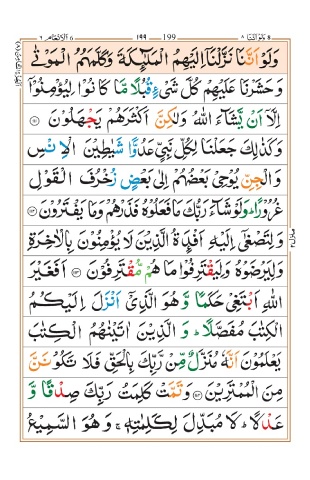 ولواننا ۸ 199 ۱۹۹ الانعام ۶
وَلَوْ اَنَّنَا نَزَّلْنَاۤ اِلَیْهِمُ الْمَلٰٓئِكَةَ وَكَلَّمَهُمُ الْمَوْتٰی
وَحَشَرْنَا عَلَیْهِمْ كُلَّ شَیْءٍ قُبُلًا مَّا كَانُوْا لِیُؤْمِنُوْۤا
اِلَّاۤ اَنْ یَّشَآءَ اللّٰهُ وَلٰكِنَّ اَكْثَرَهُمْ یَجْهَلُوْنَ ۝۱۱۱
وَكَذٰلِكَ جَعَلْنَا لِكُلِّ نَبِیٍّ عَدُوًّا شَیٰطِیْنَ الْاِنْسِ
وَالْجِنِّ یُوْحِیْ بَعْضُهُمْ اِلٰی بَعْضٍ زُخْرُفَ الْقَوْلِ
غُرُوْرًا ؕ وَلَوْ شَآءَ رَبُّكَ مَا فَعَلُوْهُ فَذَرْهُمْ وَمَا یَفْتَرُوْنَ ۝۱۱۲
وَلِتَصْغٰۤی اِلَیْهِ اَفْـِٕدَةُ الَّذِیْنَ لَا یُؤْمِنُوْنَ بِالْاٰخِرَةِ
وَلِیَرْضَوْهُ وَلِیَقْتَرِفُوْا مَا هُمْ مُّقْتَرِفُوْنَ ۝۱۱۳ اَفَغَیْرَ
اللّٰهِ اَبْتَغِیْ حَكَمًا وَّهُوَ الَّذِیْۤ اَنْزَلَ اِلَیْكُمُ
الْكِتٰبَ مُفَصَّلًا ؕ وَالَّذِیْنَ اٰتَیْنٰهُمُ الْكِتٰبَ
یَعْلَمُوْنَ اَنَّهٗ مُنَزَّلٌ مِّنْ رَّبِّكَ بِالْحَقِّ فَلَا تَكُوْنَنَّ
مِنَ الْمُمْتَرِیْنَ ۝۱۱۴ وَتَمَّتْ كَلِمَتُ رَبِّكَ صِدْقًا وَّ
عَدْلًا ؕ لَا مُبَدِّلَ لِكَلِمٰتِهٖ ۚ وَهُوَ السَّمِیْعُ